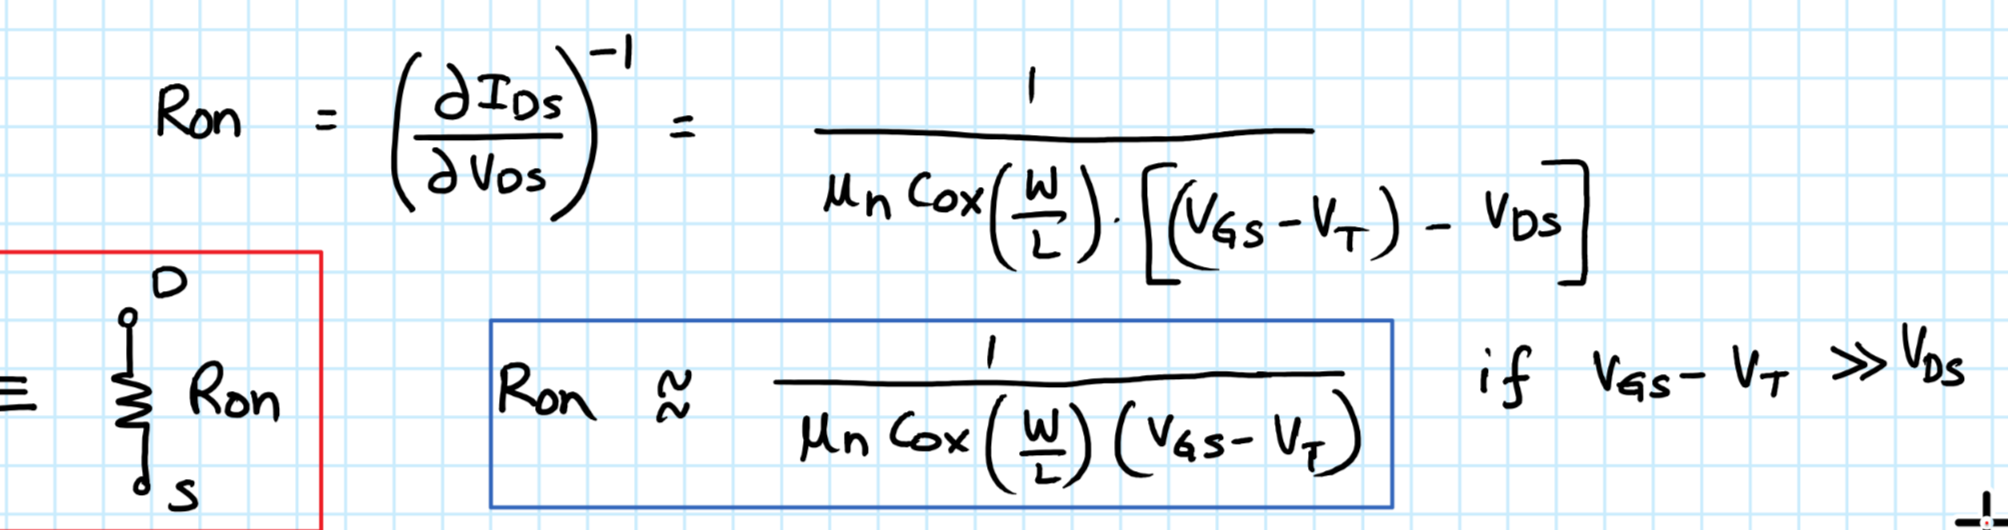 Ron = (∂IDS / ∂VDS)^-1 = 1 / μn Cox (W/L) · [(VGS - VT) - VDS]
D
≡ Ron
S
Ron ≈ 1 / μn Cox (W/L) (VGS - VT) if VGS - VT >> VDS